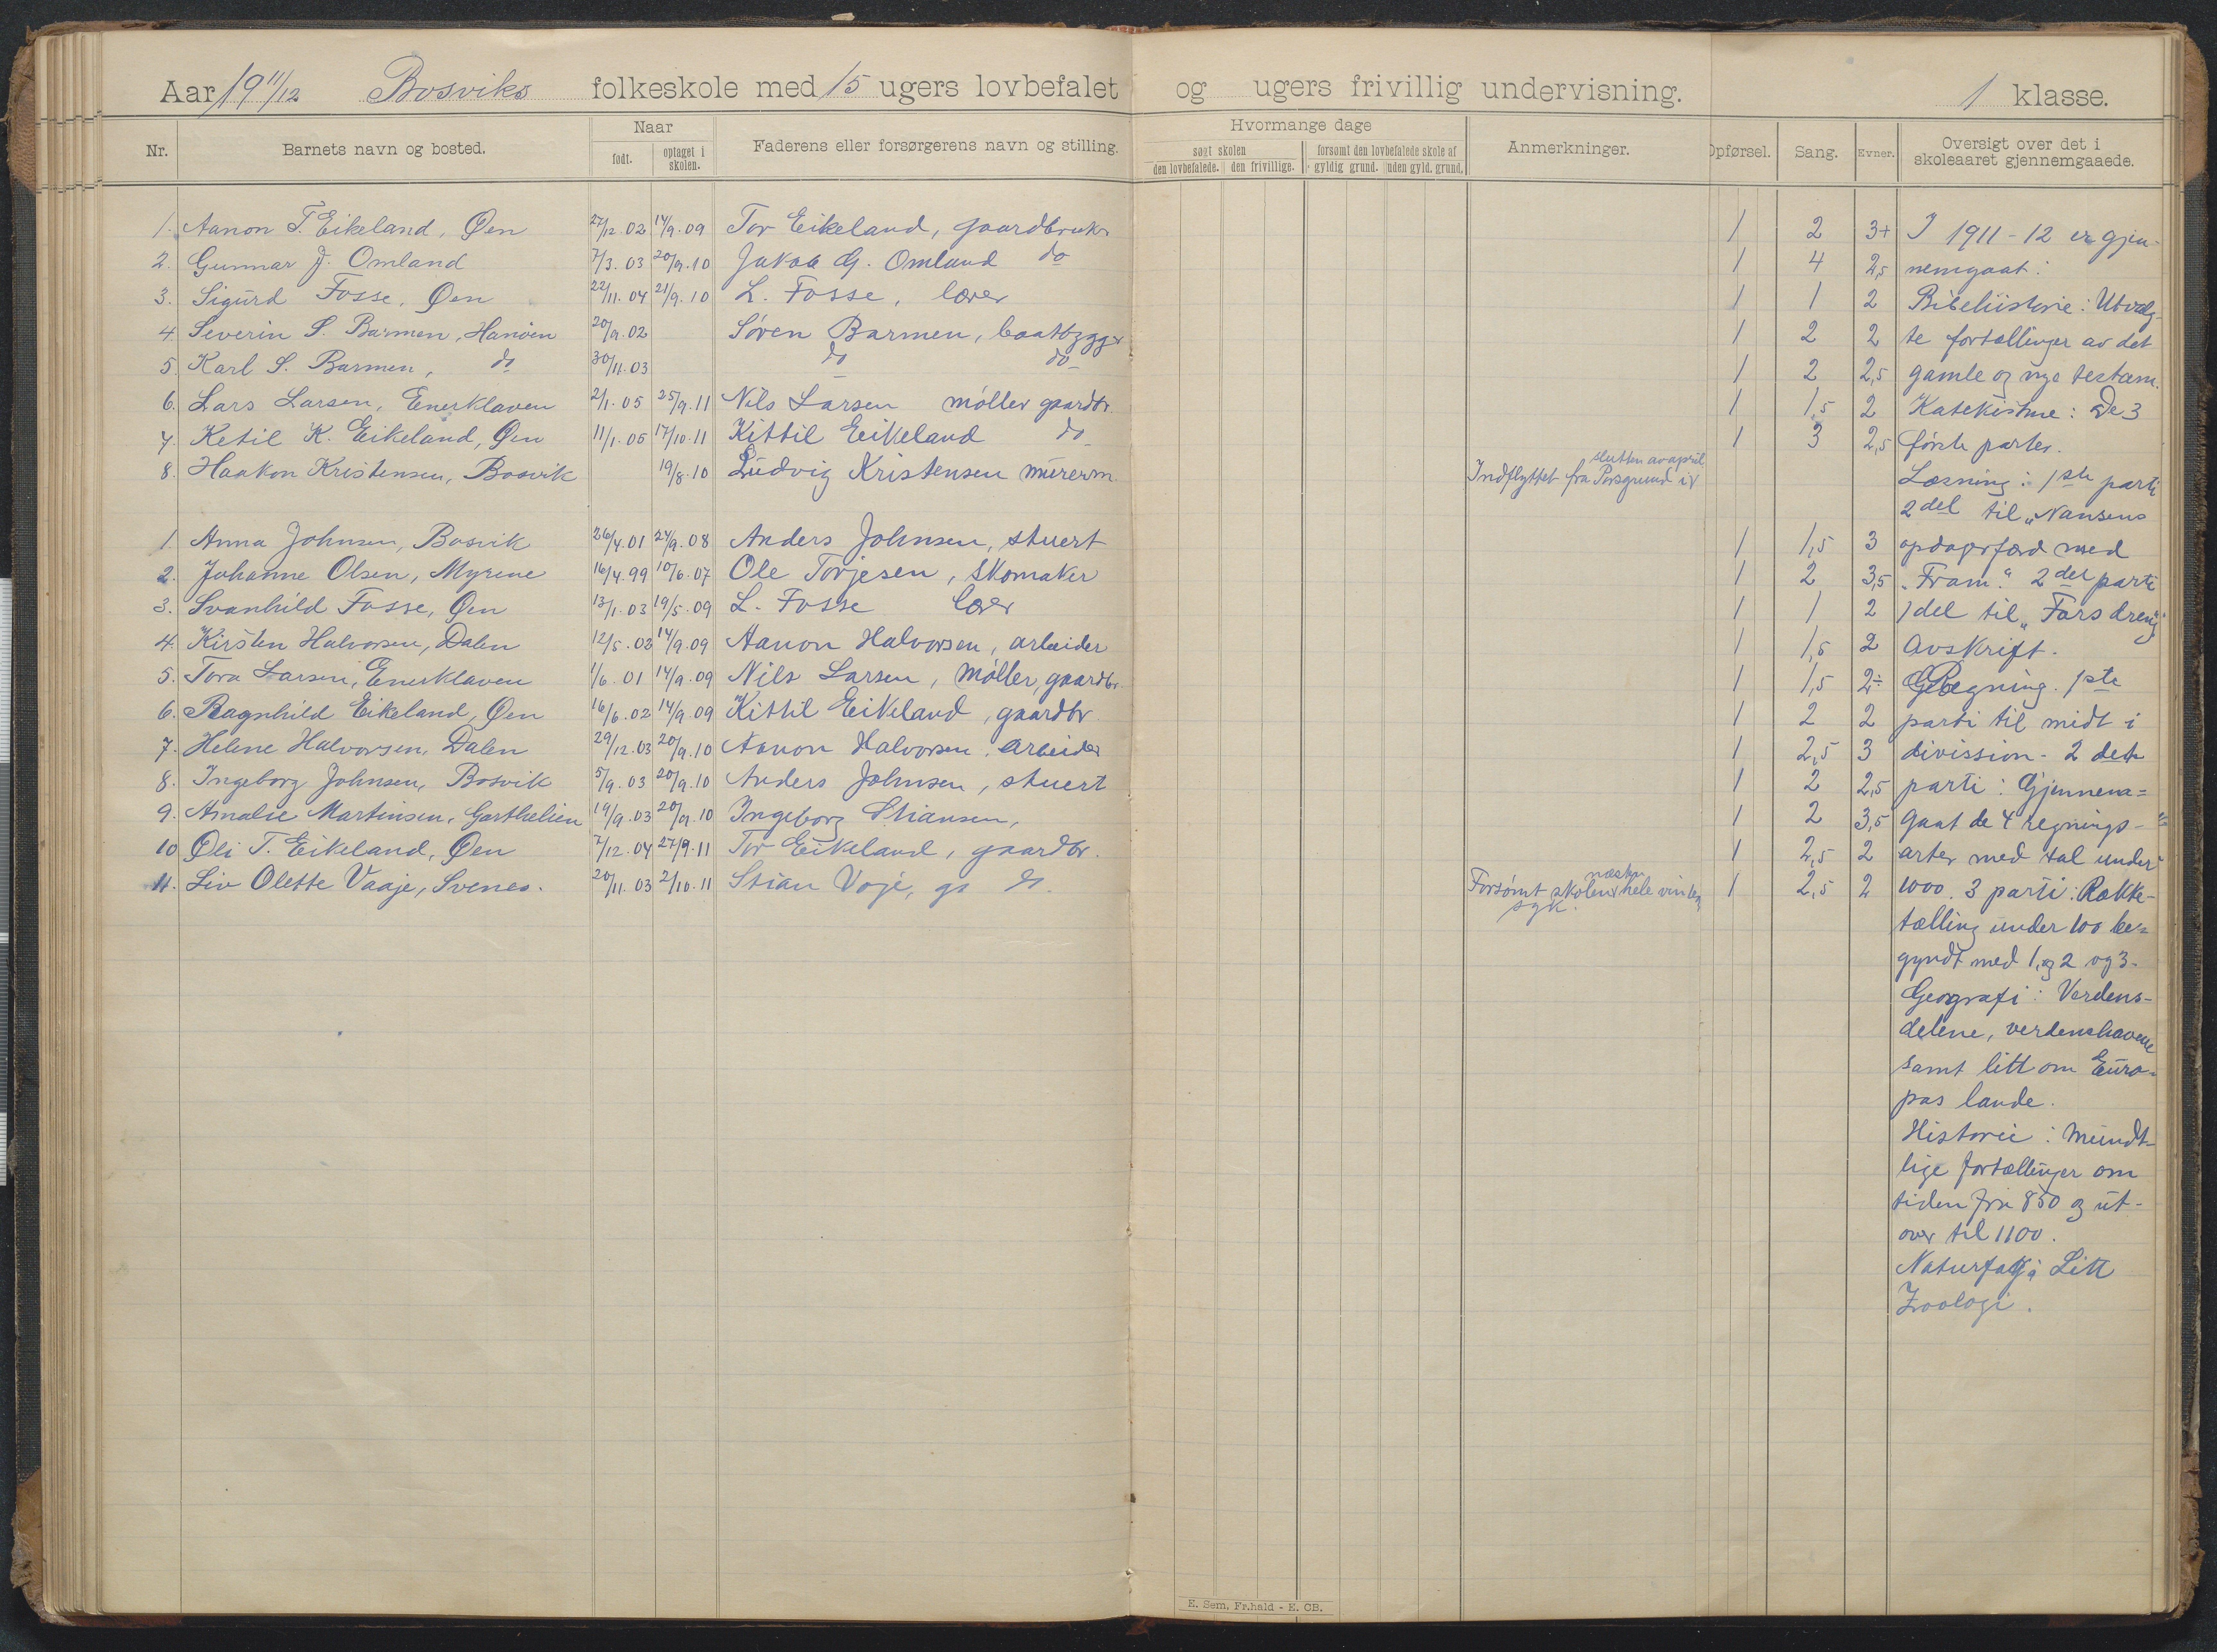 Aar 19 11/12 Bosviks folkeskole med 15 ugers lovbefalet og ugers frivillig undervisning. 1 klasse.
Nr. Barnets navn og bosted. Naar født. optaget i skolen. Faderens eller forsørgerens navn og stilling. Hvormange dage søgt skolen den lovbefalede. den frivillige. forsømt den lovbefalede skole af gyldig grund. uden gyld. grund. Anmerkninger. Opførsel. Sang. Evner. Oversigt over det i skoleaaret gjennemgaaede.
1. Aanon T. Eikeland, Øen 27/12.02 14/9.09 Tor Eikeland, gaardbruker 1 2 3+ I 1911-12 er gjen-
2. Gunnar J. Omland 7/3.03 20/9.10 Jakob G. Omland do 1 4 2,5 nemgaat:
3. Sigurd Fosse, Øen 22/11.04 21/9.10 L. Fosse, lærer 1 1 2 Bibelhistorie: Utvalg-
4 Severin S. Barmen, Hanöen 20/9.02 Søren Barmen, baatbygger 1 2 2 te fortællinger av det
5. Karl S. Barmen, do 30/11.03 do do 1 2 2,5 gamle og nye testam.
6. Lars Larsen, Enerklaven 2/1.05 25/9.11 Nils Larsen møller gaardbr. 1 1,5 2 Katekisme: De 3
7. Ketil K. Eikeland, Øen 11/1.05 17/10.11 Kittil Eikeland do 1 3 2,5 første parter.
8. Haakon Kristensen, Bosvik 19/8.10 Ludvig Kristensen murerm. Indflyttet fra Porsgrund i slutten av april Læsning: 1ste parti
2 del til "Nansens
1. Anna Johnsen, Bosvik 26/4.01 24/9.08 Anders Johnsen, stuert 1 1,5 3 opdagsfærd med
2. Johanne Olsen, Myrene 16/4.99 10/6.07 Ole Torjesen, skomaker 1 2 3,5 "Fram". 2det parti
3. Svanhild Fosse, Øen 13/1.03 19/5.09 L. Fosse lærer 1 1 2 1 del til "Fars dreng"
4. Kirsten Halvorsen, Dalen 12/5.02 14/9.09 Aanon Halvorsen, arbeider 1 1,5 2 Avskrift.
5. Tora Larsen, Enerklaven 1/6.01 14/9.09 Nils Larsen, møller, gaardbr. 1 1,5 2÷ Regning. 1ste
6. Ragnhild Eikeland, Øen 16/6.02 14/9.09 Kittil Eikeland, gaardbr. 1 2 2 parti til midt i
7. Helene Halvorsen, Dalen 29/12.03 20/9.10 Aanon Halvorsen, arbeider 1 2,5 3 divission. 2 det
8. Ingeborg Johnsen, Bosvik 5/9.03 20/9.10 Anders Johnsen, stuert 1 2 2,5 parti: Gjennem=
9. Amalie Martinsen, Garthelien 19/9.03 20/9.10 Ingeborg Stiansen, 1 2 3,5 gaat de 4 regnings-
10 Øli T. Eikeland, Øen 7/12.04 27/9.11 Tor Eikeland, gaardbr. 1 2,5 2 arter med tal under
11. Liv Olette Vaaje, Svenes. 20/11.03 2/10.11 Stian Voje, do. Forsømt skolen næsten hele vinteren syk. 1 2,5 2 1000. 3 parti: Række-
tælling under 100 be=
gyndt med 1, og 2 og 3.
Geografi: Verdens-
delene, verdenshavene
samt litt om Euro=
pas lande.
Historie: Mundt-
lige fortællinger om
tiden fra 850 og ut-
over til 1100.
Naturfag: Litt
Zoologi.
E. Sem, Fr.hald - E. CB.